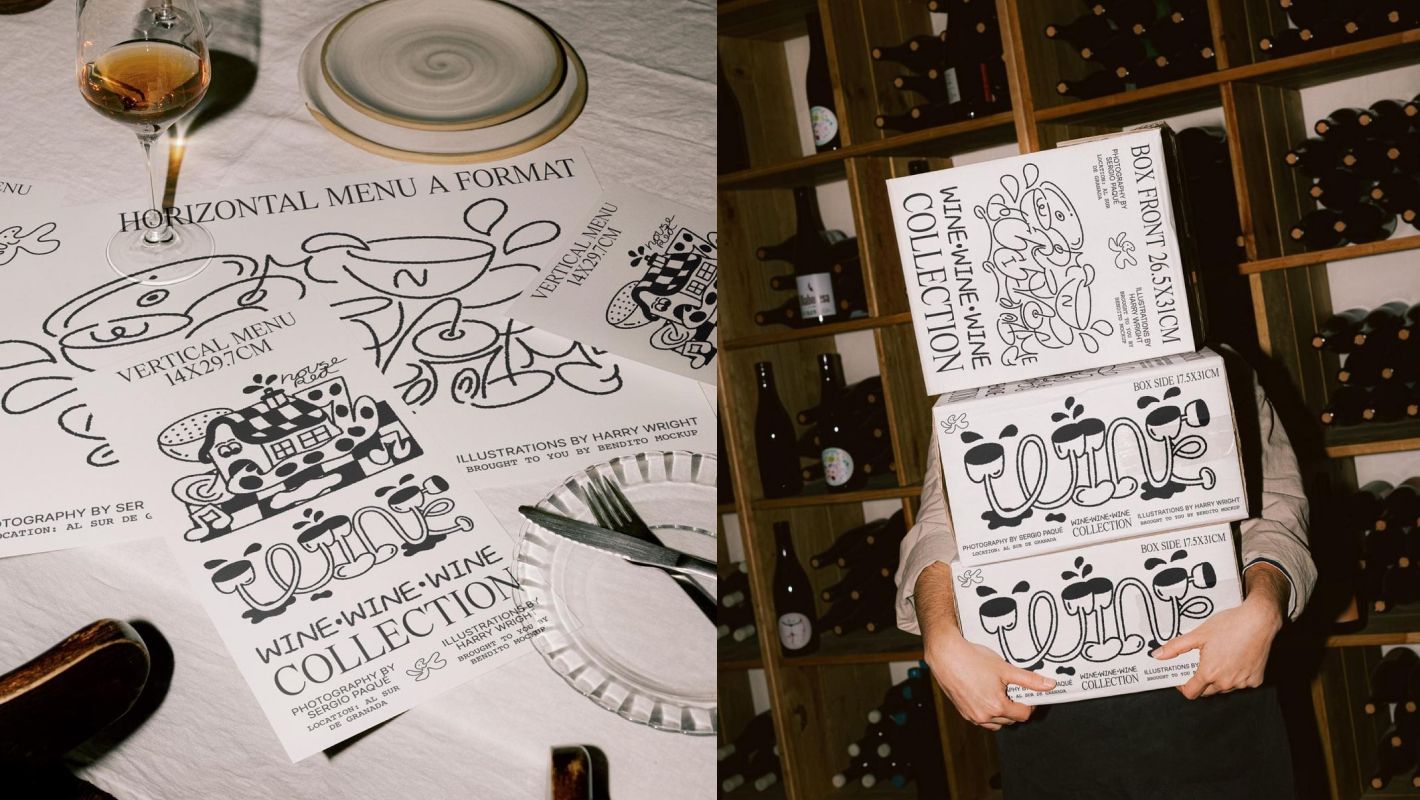 ENU
HORIZONTAL MENU A FORMAT
VERTICAL MENU
14X29.7CM
house
Red
ILLUSTRATIONS BY HARRY WRIGHT
BROUGHT TO YOU BY BENDITO MOCKUP
OTOGRAPHY BY SER
LOCATION: AL SUR DE G
VERTICAL MENU
14X29.7CM
house
Red
wine
WINE•WINE•WINE
COLLECTION
PHOTOGRAPHY BY
SERGIO PAQUÉ
LOCATION: AL SUR
DE GRANADA
ILLUSTRATIONS BY
HARRY WRIGHT
BROUGHT TO YOU BY
BENDITO MOCKUP
BOX FRONT 26.5X31CM
PHOTOGRAPHY BY
SERGIO PAQUÉ
LOCATION: AL SUR
DE GRANADA
ILLUSTRATIONS BY
HARRY WRIGHT
BROUGHT TO YOU BY
BENDITO MOCKUP
WINE•WINE•WINE
COLLECTION
BOX SIDE 17.5X31CM
wine
PHOTOGRAPHY BY SERGIO PAQUÉ
LOCATION: AL SUR DE GRANADA
WINE•WINE•WINE
COLLECTION
ILLUSTRATIONS BY HARRY WRIGHT
BROUGHT TO YOU BY BENDITO MOCKUP
BOX SIDE 17.5X31CM
wine
PHY BY SERGIO PAQUÉ
AL SUR DE GRANADA
WINE•WINE•WINE
COLLECTION
ILLUSTRATIONS BY
BROUGHT TO YOU B